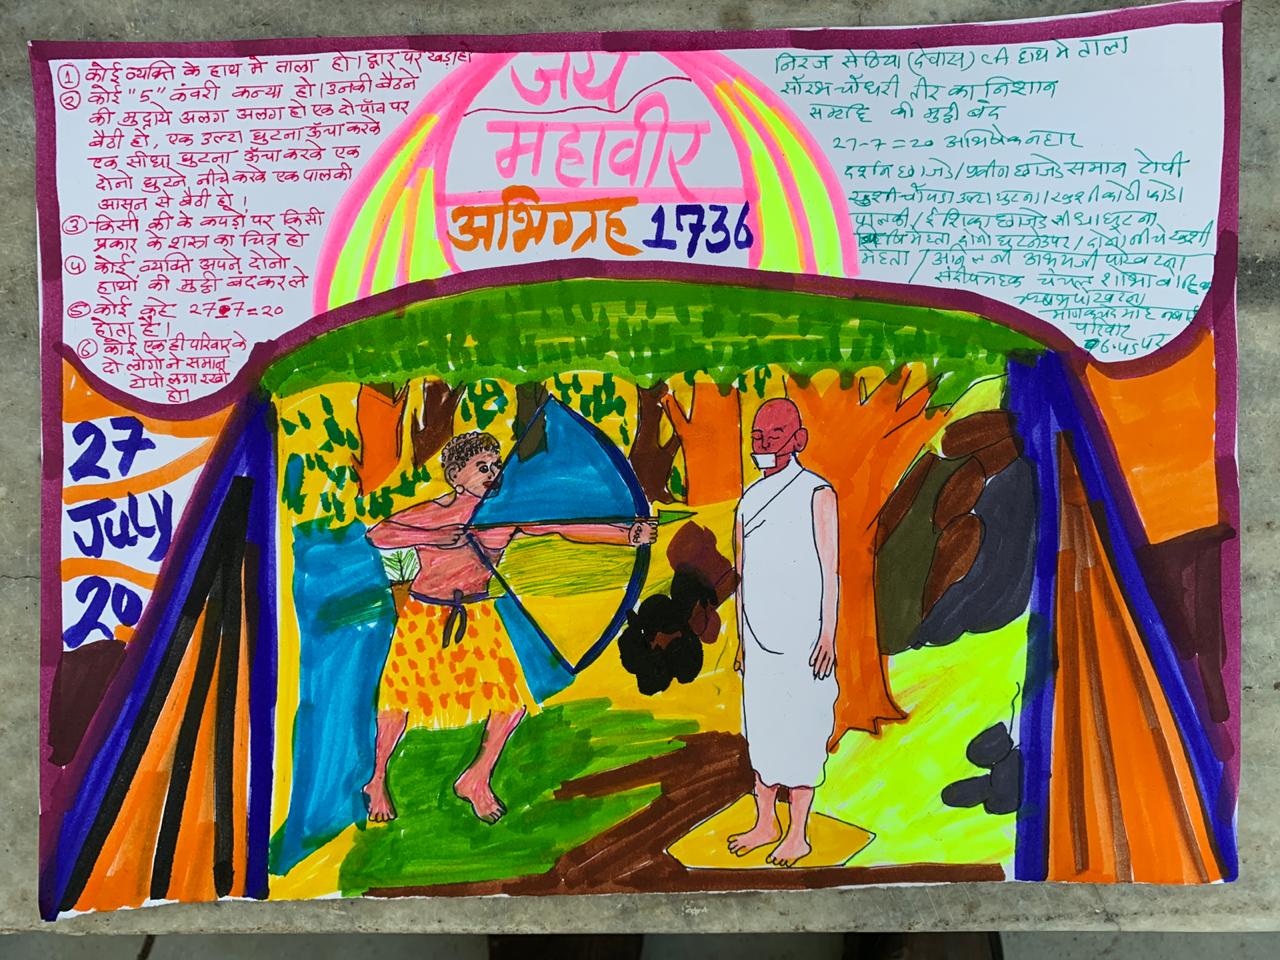 ① कोई व्यक्ति के हाथ मे ताला हो। द्वार पर खड़ा हो
② कोई "5" कंवरी कन्या हो। उनकी बैठने
की मुद्राये अलग अलग हो एक दो पाँव पर
बैठी हो, एक उल्टा घुटना ऊँचा करके
एक सीधा घुटना ऊँचा करके एक
दोनो घुटने नीचे करके एक पालकी
आसन से बैठी हो।
③ किसी की के कपड़ों पर किसी
प्रकार के शस्त्र का चित्र हो
④ कोई व्यक्ति अपने दोनो
हाथों की मुट्ठी बंद कर ले
⑤ कोई कहे 27-7=20
होता है।
⑥ कोई एक ही परिवार के
दो लोगों ने समान
टोपी लगा रखी
हो।
जय
महावीर
अभिग्रह 1736
निरज सेठिया (देवास) के हाथ मे ताला
सौरभ चौधरी तीर का निशान
की मुट्ठी बंद
27-7=20 अभिषेक नहार
दर्शन छाजेड़/प्रवीन छाजेड़ समान टोपी
खुशी चौपड़ा उल्टा घुटना/
पालकी/ईशिका छाजेड़ सीधा घुटना
मेहता दोनो घुटने उपर/दोनो नीचे खुशी
मेहता/
परिवार
27
July
20